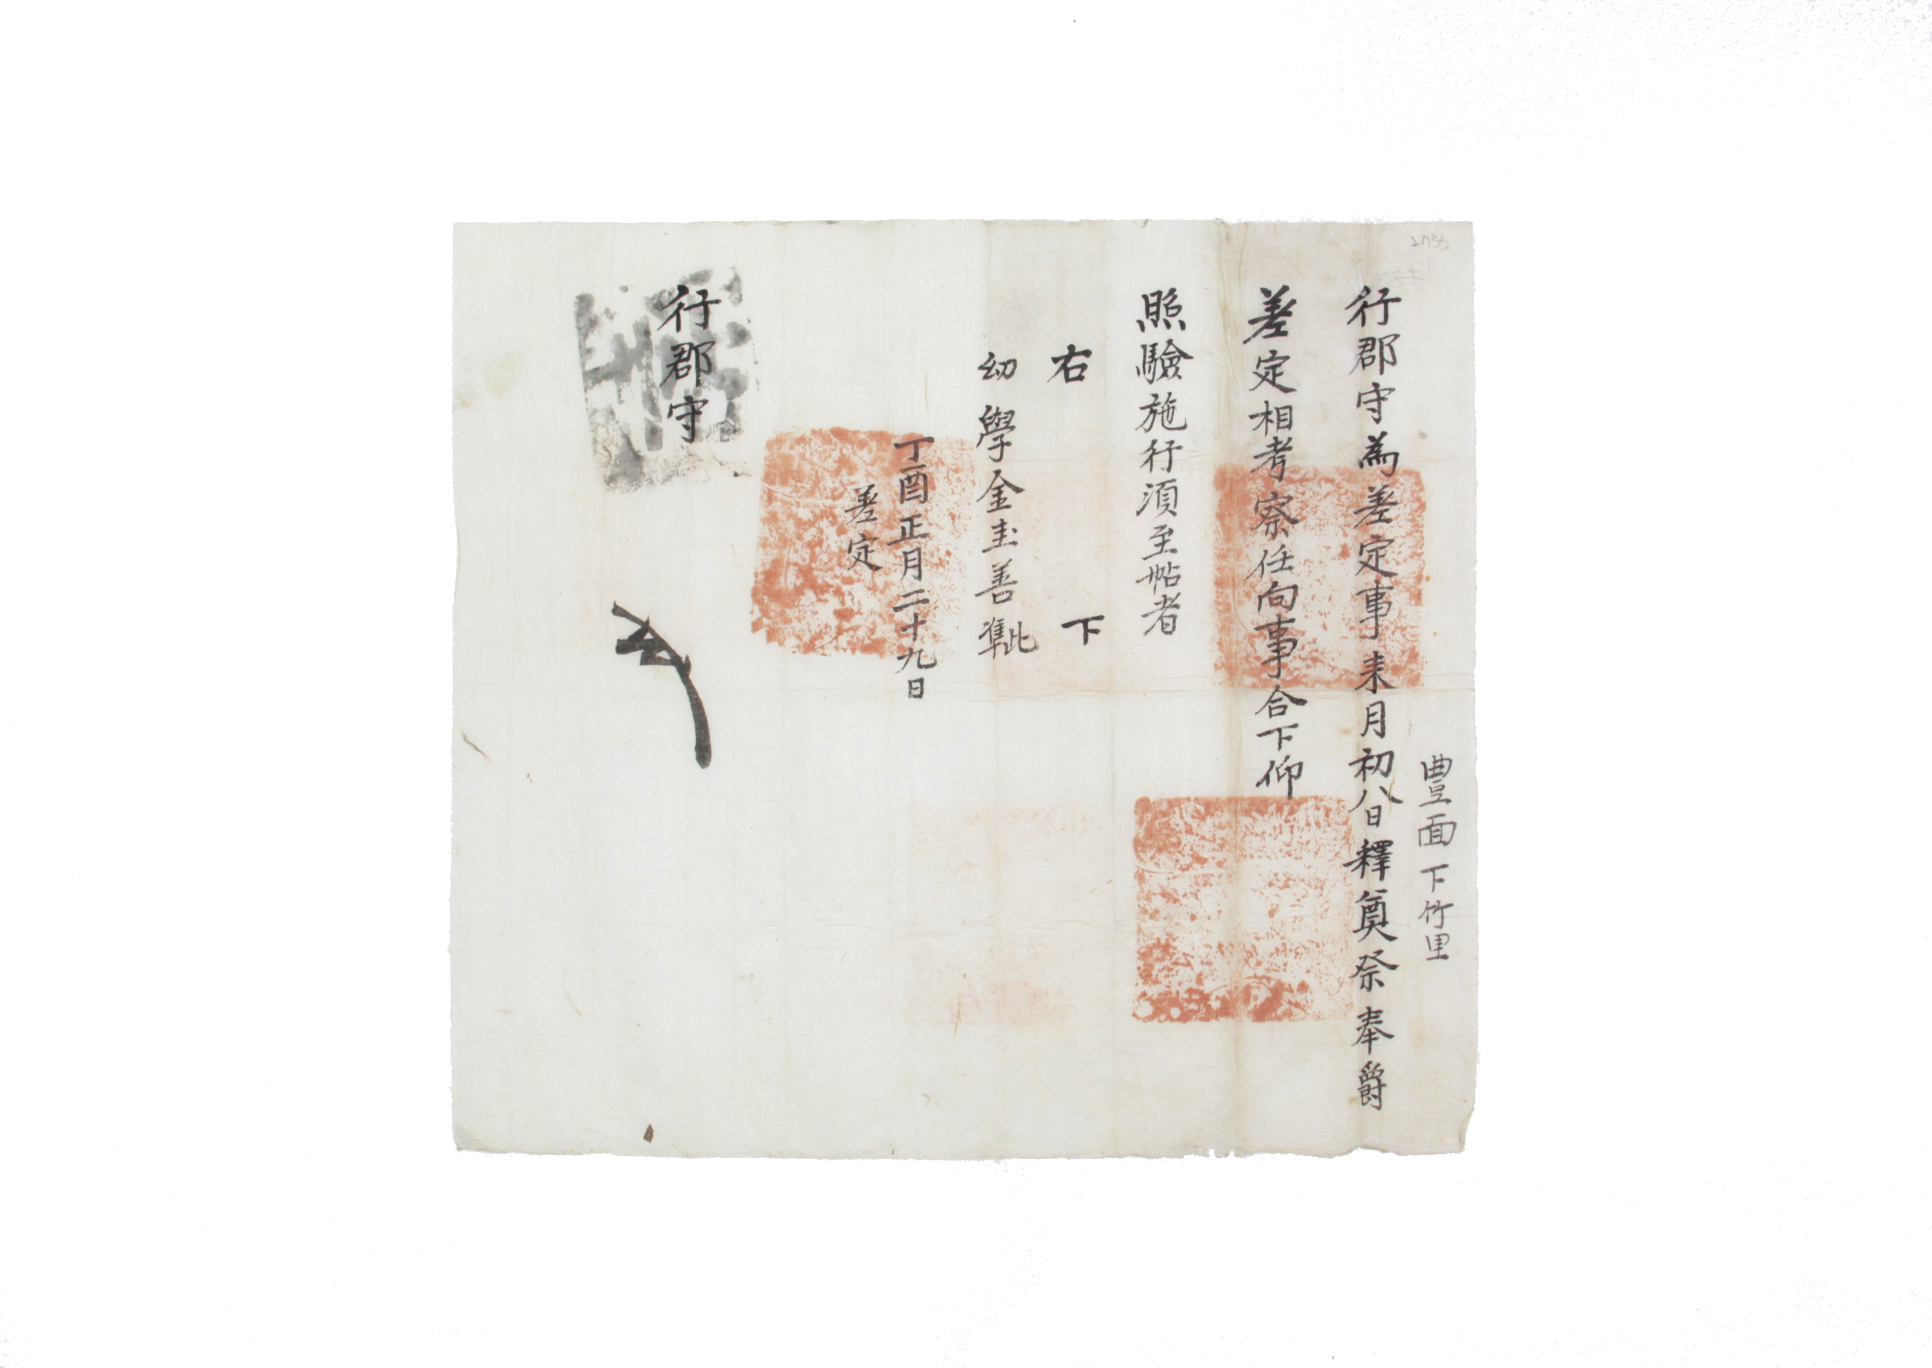 豊面下竹里
行郡守為差定事来月初八日釋奠祭奉爵
差定相考察任向事合下仰
照驗施行須至帖者
右下
幼學金圭善準此
丁酉正月二十九日
差定
行郡守